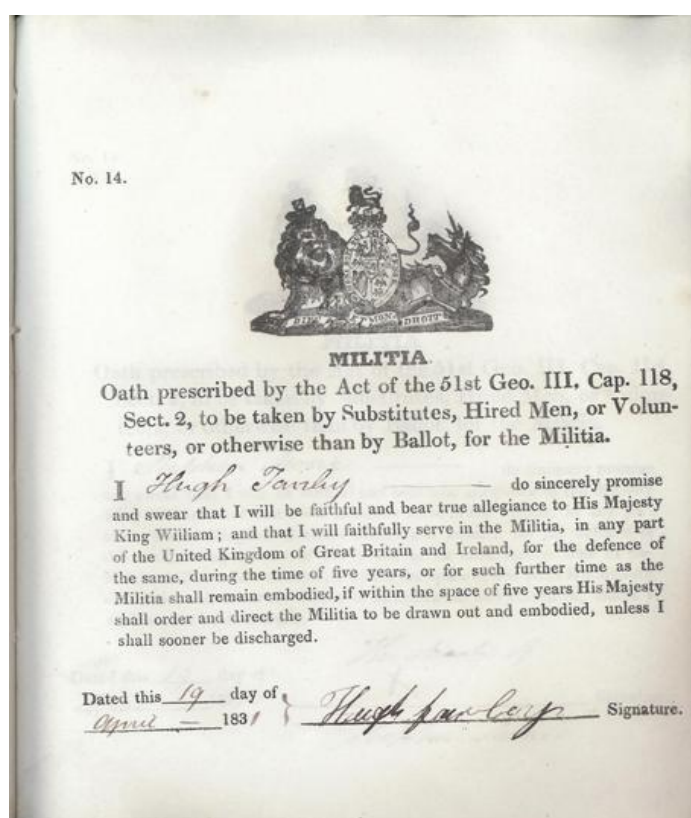 No. 14.
DIEU ET MON DROIT
MILITIA.
Oath prescribed by the Act of the 51st Geo. III, Cap. 118,
Sect. 2, to be taken by Substitutes, Hired Men, or Volun-
teers, or otherwise than by Ballot, for the Militia.
I Hugh do sincerely promise
and swear that I will be faithful and bear true allegiance to His Majesty
King William; and that I will faithfully serve in the Militia, in any part
of the United Kingdom of Great Britain and Ireland, for the defence of
the same, during the time of five years, or for such further time as the
Militia shall remain embodied, if within the space of five years His Majesty
shall order and direct the Militia to be drawn out and embodied, unless I
shall sooner be discharged.
Dated this 19 day of
April 1831
Hugh Signature.